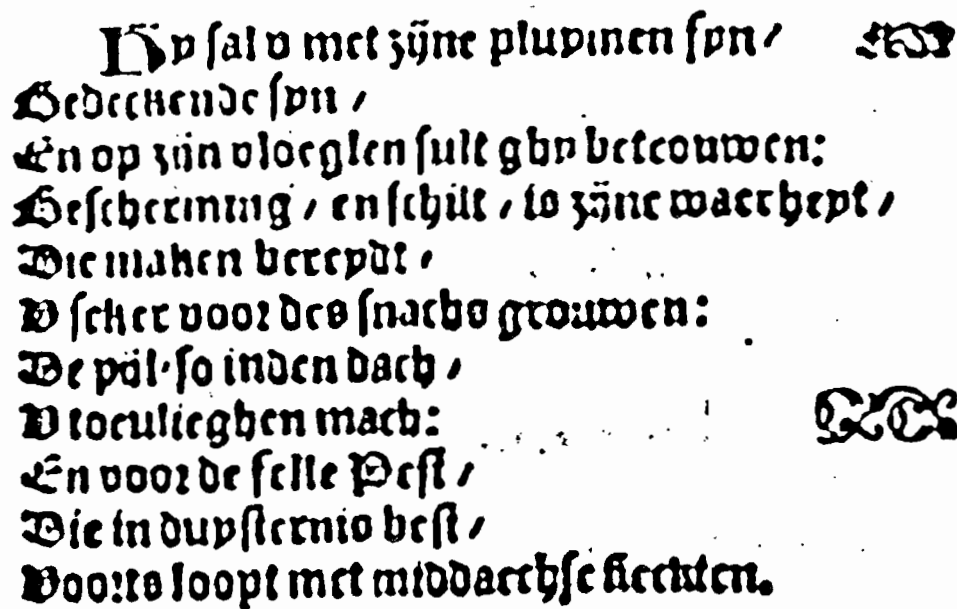 Hy sal v met zijne pluymen fyn/
Gedeckende syn/
En op zijn vloeglen sult ghy betrouwen:
Bescherming/ en schilt/ is zijne waerheyt/
Die maken bereydt/
V seker voor des snachs grouwen:
De pijl/ so inden dach/
V toevlieghen mach:
En voor de felle Pest/
Die in duysternis best/
Voorts loopt met middaechse siecten.